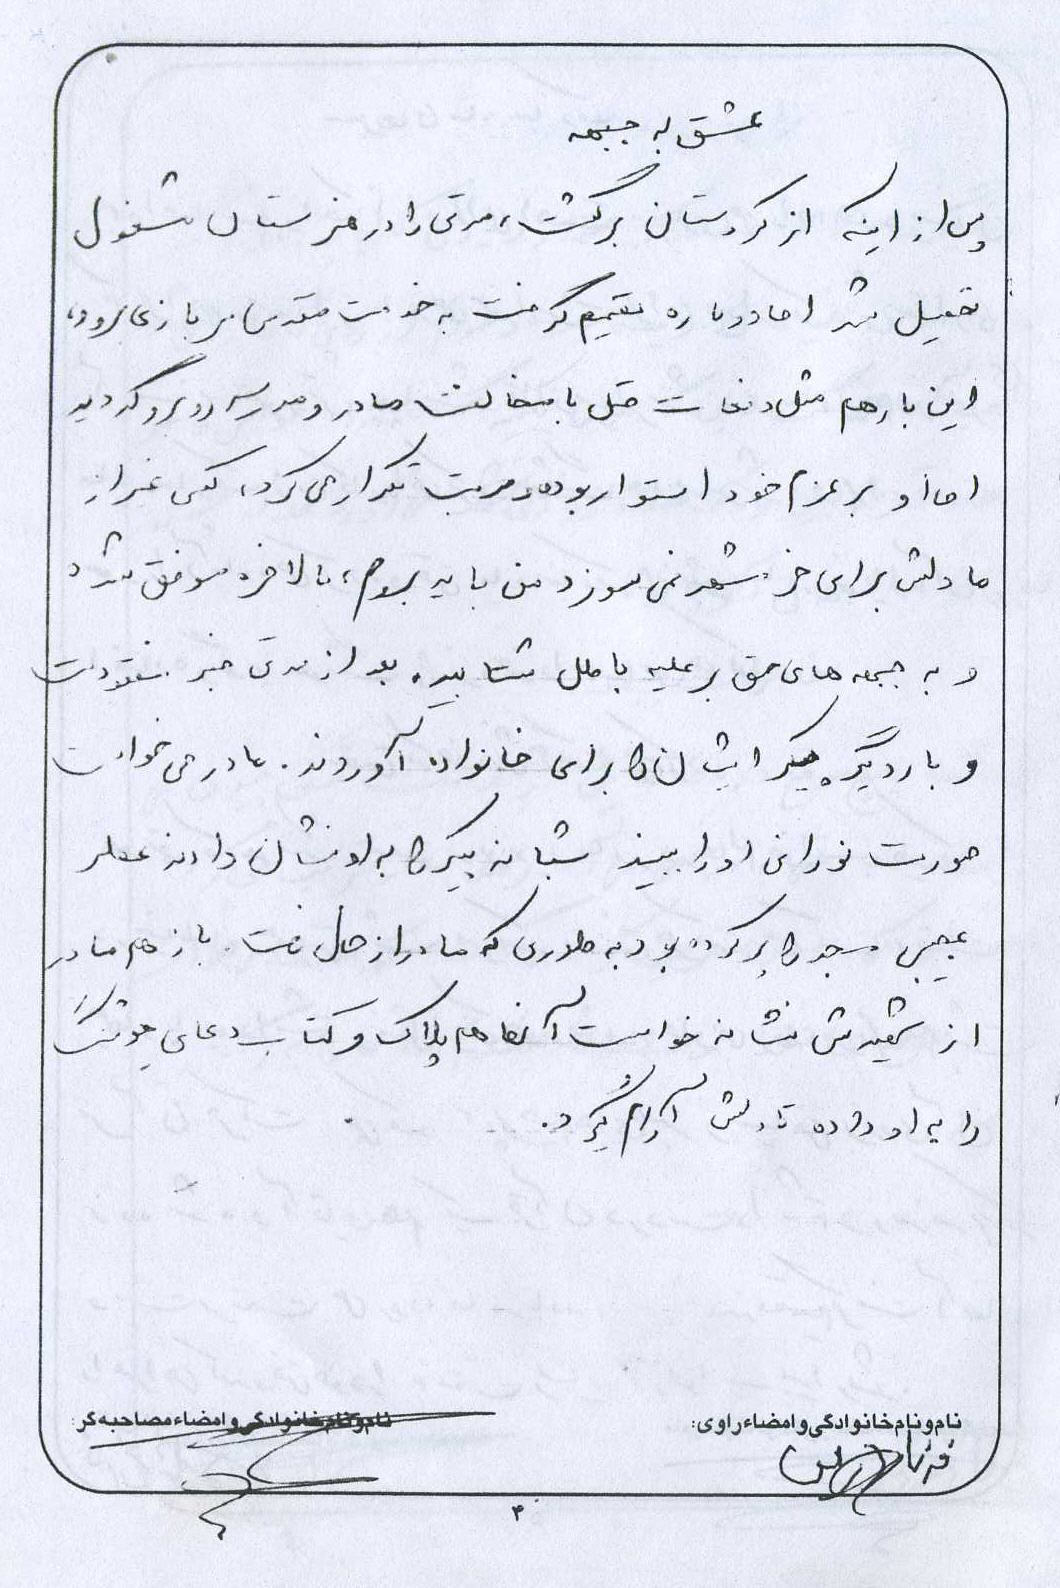 عشق به جبهه
پس از اینکه از کردستان برگشت، مدتی را در هنرستان مشغول
تحصیل شد اما دوباره تصمیم گرفت به خدمت مقدس سربازی برود،
این بار هم مثل دفعات قبل با مخالفت مادر و مدرسه روبرو گردید
اما او بر عزم خود استوار بوده و مرتب تکرار می کرد، کسی غیر از
ما دلش برای خرمشهر نمی سوزد من باید بروم، بالاخره موفق شد
و به جبهه های حق بر علیه باطل شتابید. بعد از مدتی خبر مفقودیت
و بار دیگر پیکر ایشان را برای خانواده آوردند. مادر می خواست
صورت نورانی او را ببیند شبانه پیکر را به او نشان دادند عطر
عجیبی مسجد را پر کرده بود به طوری که مادر از حال رفت. باز هم مادر
از شهیدش نشانه خواست آنها هم پلاک و کتاب دعای
را به او داده تا دلش آرام گیرد.
نام و نام خانوادگی و امضاء راوی:
نام و نام خانوادگی و امضاء مصاحبه گر:
۴